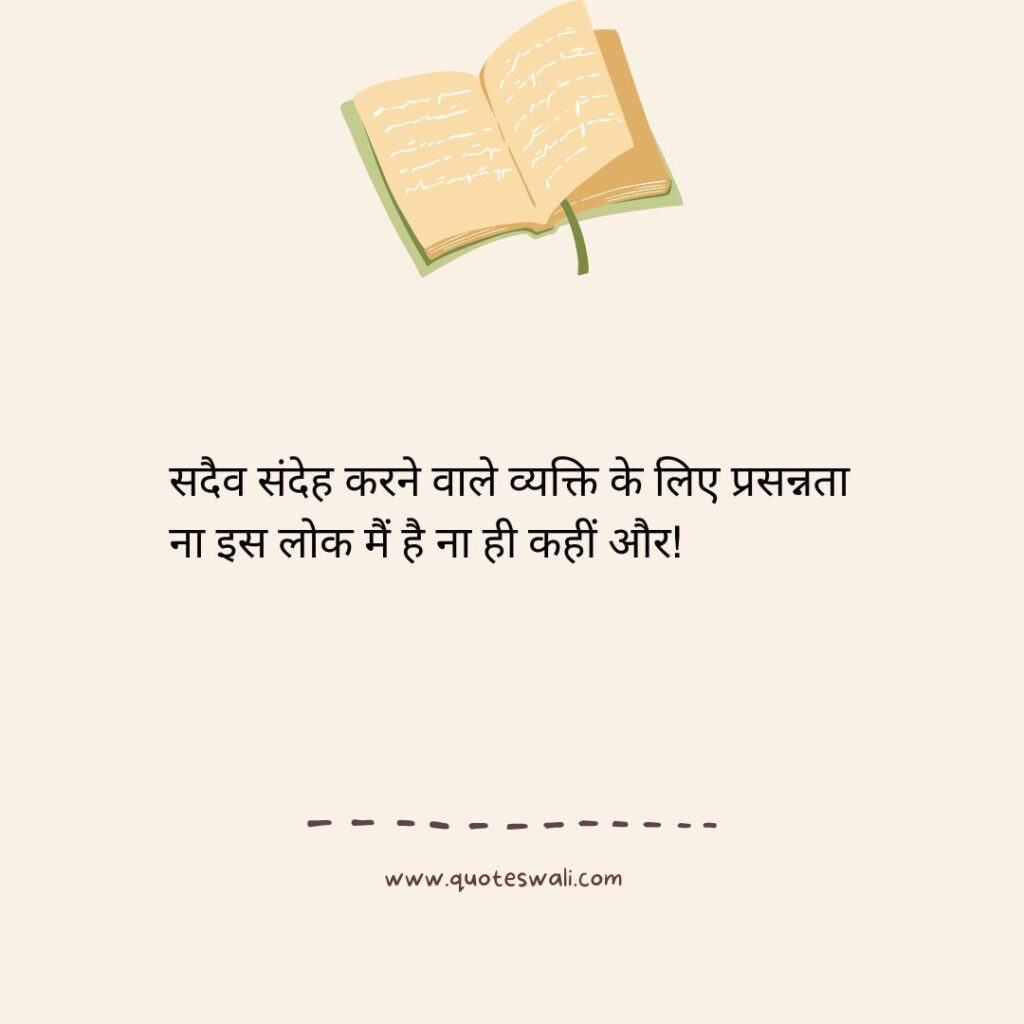 सदैव संदेह करने वाले व्यक्ति के लिए प्रसन्नता
ना इस लोक मैं है ना ही कहीं और!
www.quoteswali.com